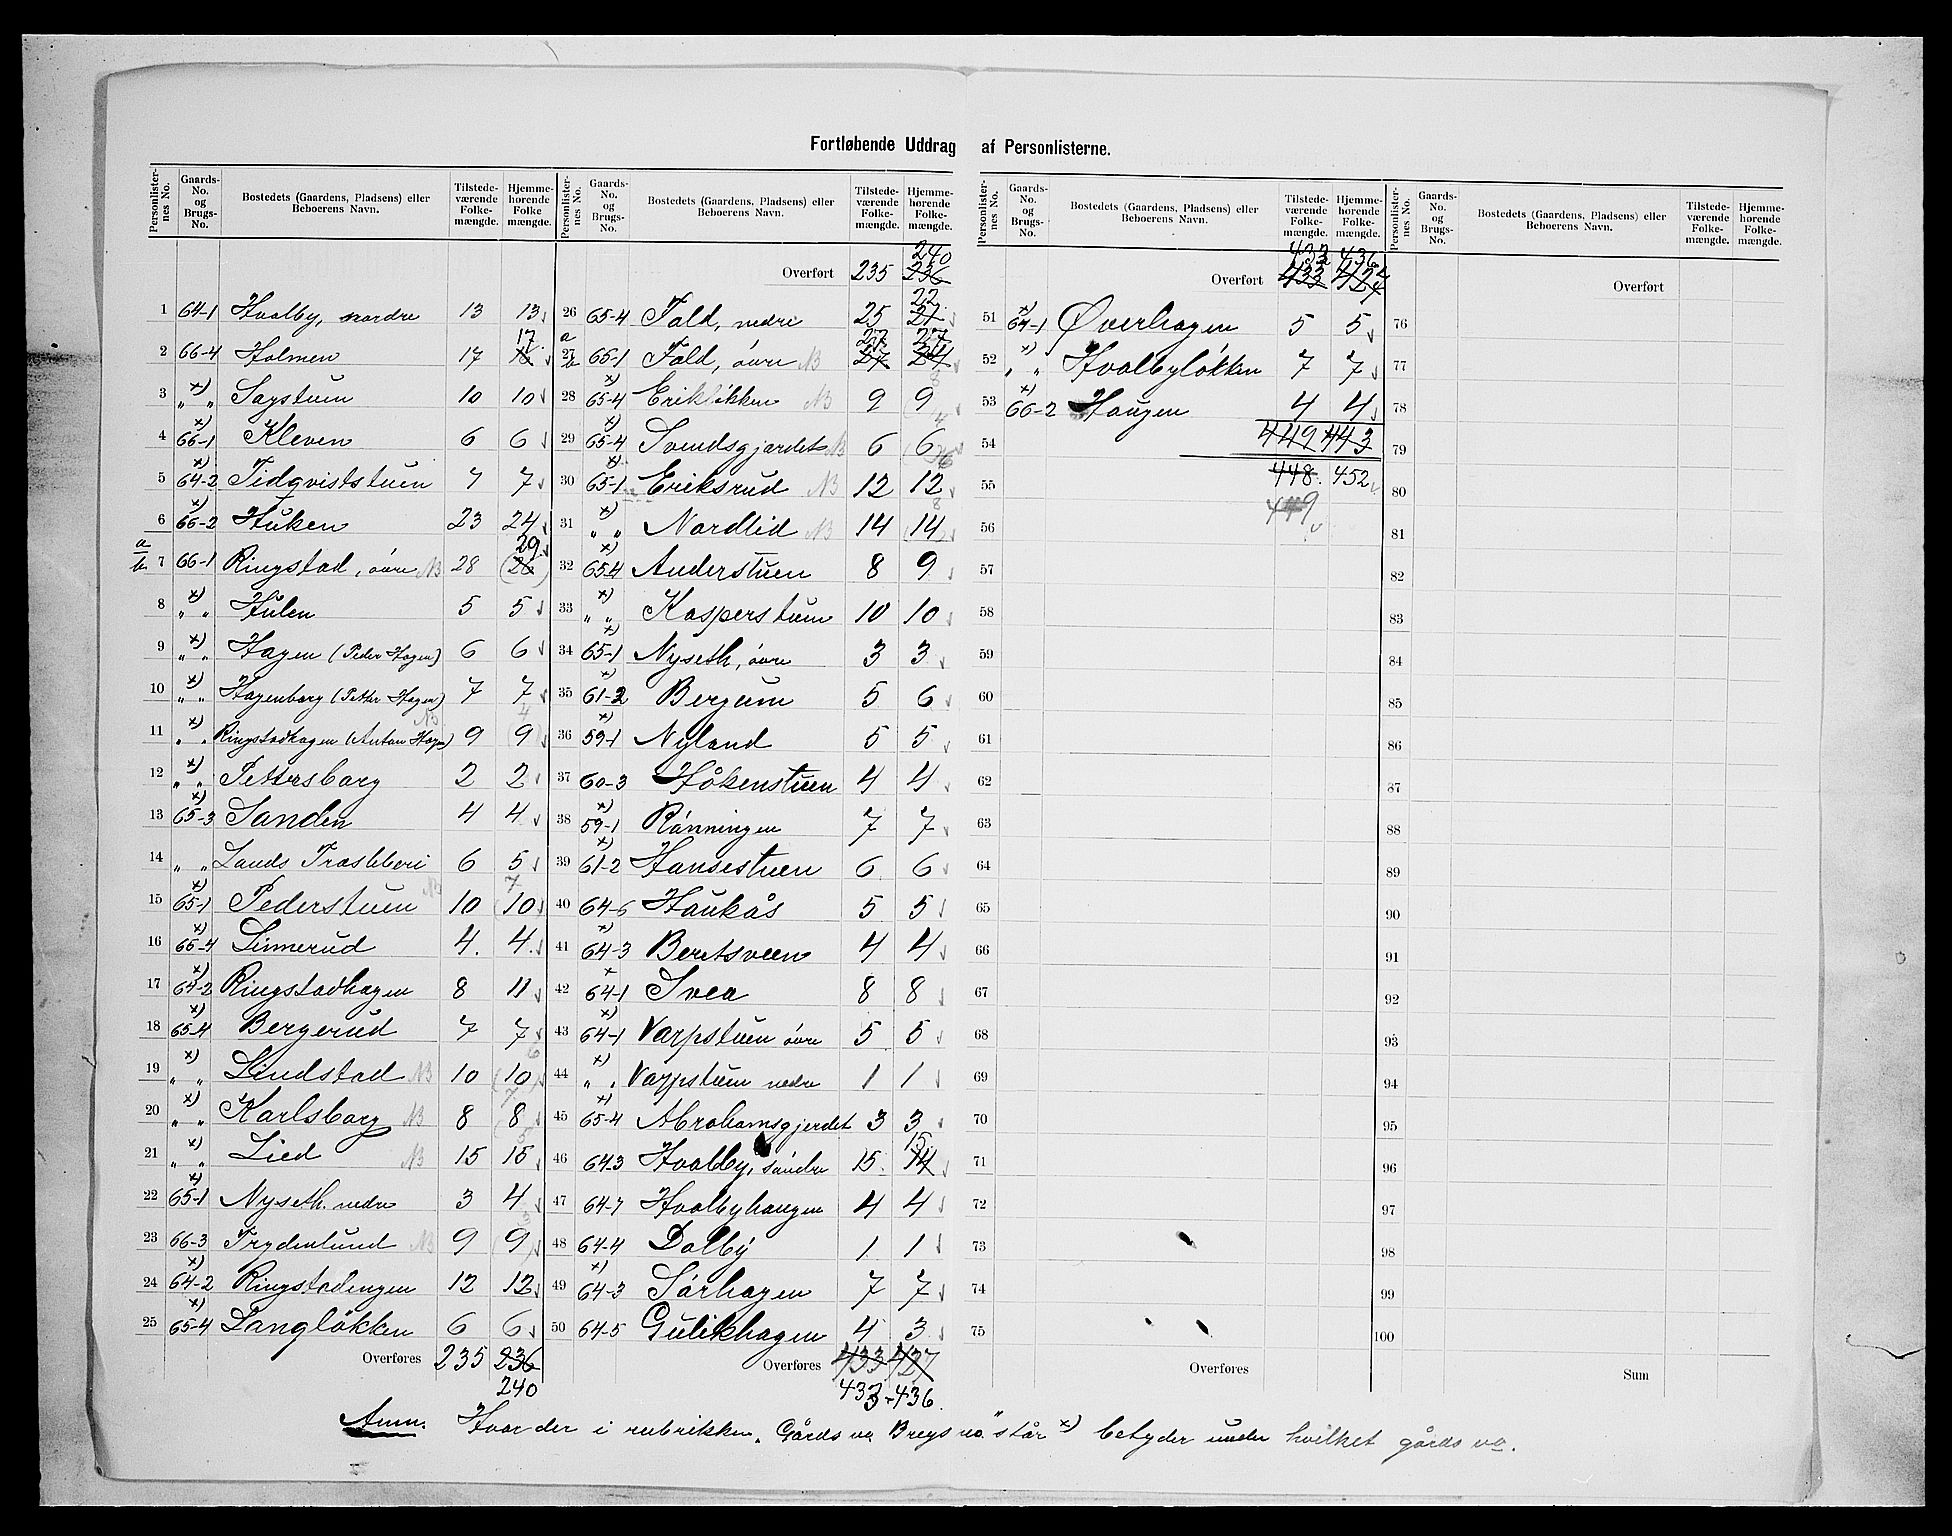 Fortløbende Uddrag af Personlisterne.
Personlister-nes No. Gaards-No. og Brugs-No. Bostedets (Gaardens, Pladsens) eller Beboerens Navn. Tilstede-værende Folke-mængde. Hjemme-hørende Folke mængde.
1 64-1 Hvalby, nordre 13 13
2 66-4 Holmen 17 16 17
3 x) „ „ Sagstuen 10 10
4 x) 66-1 Kleven 6 6
5 x) 64-2 Tidqviststuen 7 7
6 x) 66-2 Huken 23 24
a b 7 66-1 Ringstad, övre NB 28 (26) 29
8 x) „ „ Hulen 5 5
9 x) „ „ Hagen (Peder Hagen) 6 6
10 x) „ „ Hagenborg (Petter Hagen) 7 7
11 x) „ „ Ringstadhagen (Anton Hagen) NB 9 9 4
12 x) „ „ Pettersborg 2 2
13 x) 65-3 Sanden 4 4
14 „ „ Lands Træsliberi 6 5
15 x) 65-1 Pederstuen NB 10 10 7
16 x) 66-4 Linnerud 4. 4.
17 x) 64-2 Ringstadhagen 8 11
18 x) 65-4 Bergerud 7 7
19 x) „ „ Lindstad NB 10 (10) 6
20 x) „ „ Karlsborg NB 8 8 7
21 x) „ „ Lied NB 15 15
22 x) 65-1 Nyseth nedre 3 4
23 66-3 Frydenlund NB 9 9
24 x) 64-2 Ringstadengen 12 12
25 x) 65-4 Langlökken 6 6
Overføres 235 236
240
Personlister-nes No. Gaards-No. og Brugs-No. Bostedets (Gaardens, Pladsens) eller Beboerens Navn. Tilstede-værende Folke-mængde. Hjemme-hørende Folke-mængde.
240
Overført 235 236
26 65-4 Fald, nedre 25 21 22
a b 27 65-1 Fald, övre NB 27 24 27 27
28 x) 65-4 Eriklökken NB 9 9
29 x) 65-4 Svendsgjærdet NB 6 6 4
30 x) 65-1 Eriksrud NB 12 12
31 x) „ „ Nordlid NB 14 14 8
32 x) 65-4 Anderstuen 8 9
33 x) „ „ Kasperstuen 10 10
34 x) 65-1 Nyseth, övre 3 3
35 x) 61-2 Bergum 5 6
36 x) 59-1 Nyland 5 5
37 60-3 Håkenstuen 4 4
38 x) 59-1 Rönningen 7 7
39 x) 61-2 Hansestuen 6 6
40 64-6 Haukås 5 5
41 x) 64-3 Beretsveen 4 4
42 x 64-1 Svea 8 8
43 x) 64-1 Varpstuen övre 5 5
44 x) „ „ Varpstuen nedre 1 1
45 x) 65-4 Abrahamsgjerdet 3 3
46 64-3 Hvalby, söndre 15. 14 15
47 64-7 Hvalbyhaugen 4 4
48 64-4 Dalby 1 1
49 x) 64-3 Sörhagen 7 7
50 64-5 Gulikhagen 4 3
Overføres 433 427
433 436.
Personlister-nes No. Gaards-No. og Brugs-No. Bostedets (Gaardens, Pladsens) eller Beboerens Navn. Tilstede-værende Folke-mængde. Hjemme-hørende Folke-mængde.
433 436
Overført 433 427
51 x) 64-1 Øverhagen 5 5
52 x) „ „ Hvalbylökken 7 7
53 x) 66-2 Haugen 4 4
54 449 443
55 448. 452
56 449
57
58
59
60
61
62
63
64
65
66
67
68
69
70
71
72
73
74
75
Overføres
Personlister-nes No. Gaards-No. og Brugs-No. Bostedets (Gaardens, Pladsens) eller Beboerens Navn. Tilstede-værende Folke-mængde. Hjemme-hørende Folke-mængde.
Overført
76
77
78
79
80
81
82
83
84
85
86
87
88
89
90
91
92
93
94
95
96
97
98
99
100
Sum
Anm. Hvor der i rubrikken „Gårds no Brugs no." står x) betyder under hvilket gårds no.